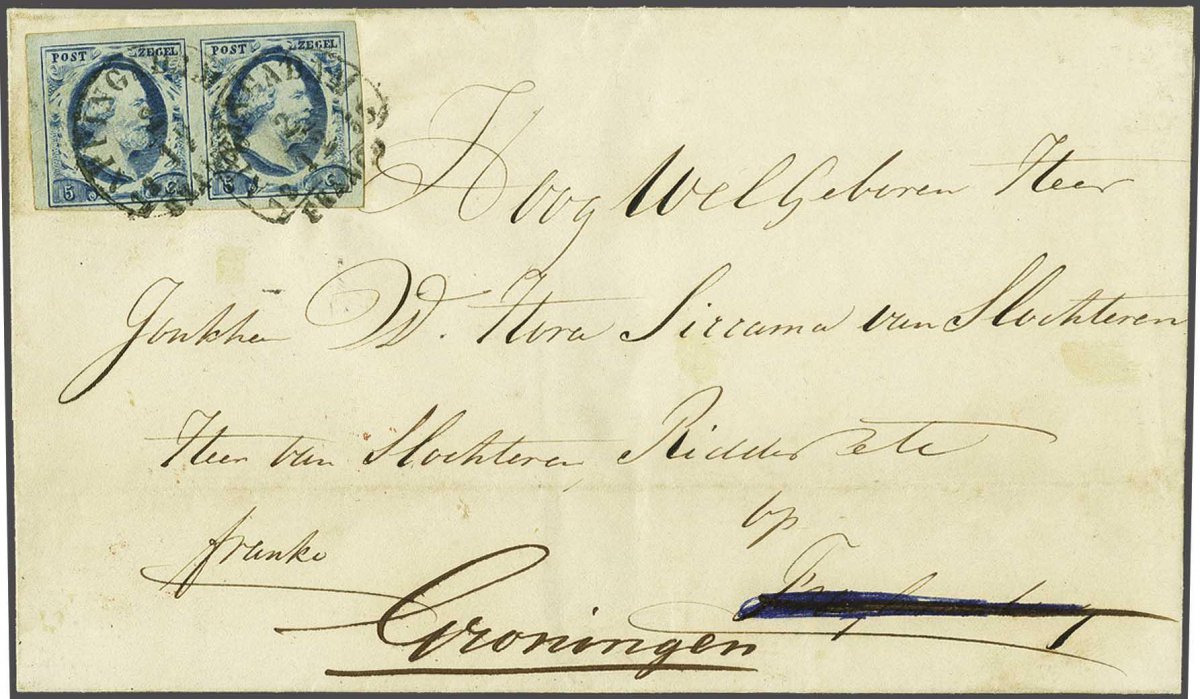 POST ZEGEL POST ZEGEL
5 C. 5 C.
FRANCO
Hoog Wel Geboren Heer
Jonkheer W. Hora Siccama van Slochteren
Heer van Slochteren Ridder etc
op
franko
Groningen